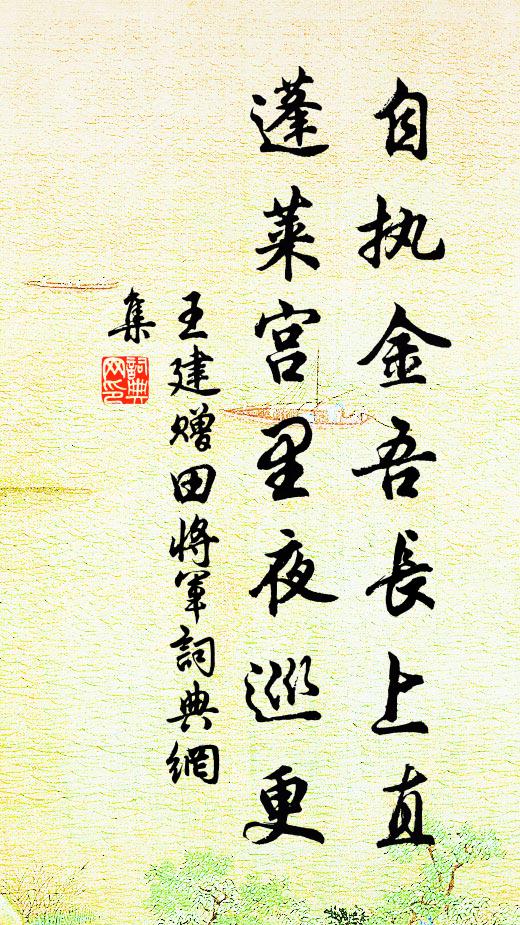 自执金吾長上直
蓬莱宫里夜巡更
王建赠田将军詞典網
集
詞典
网印